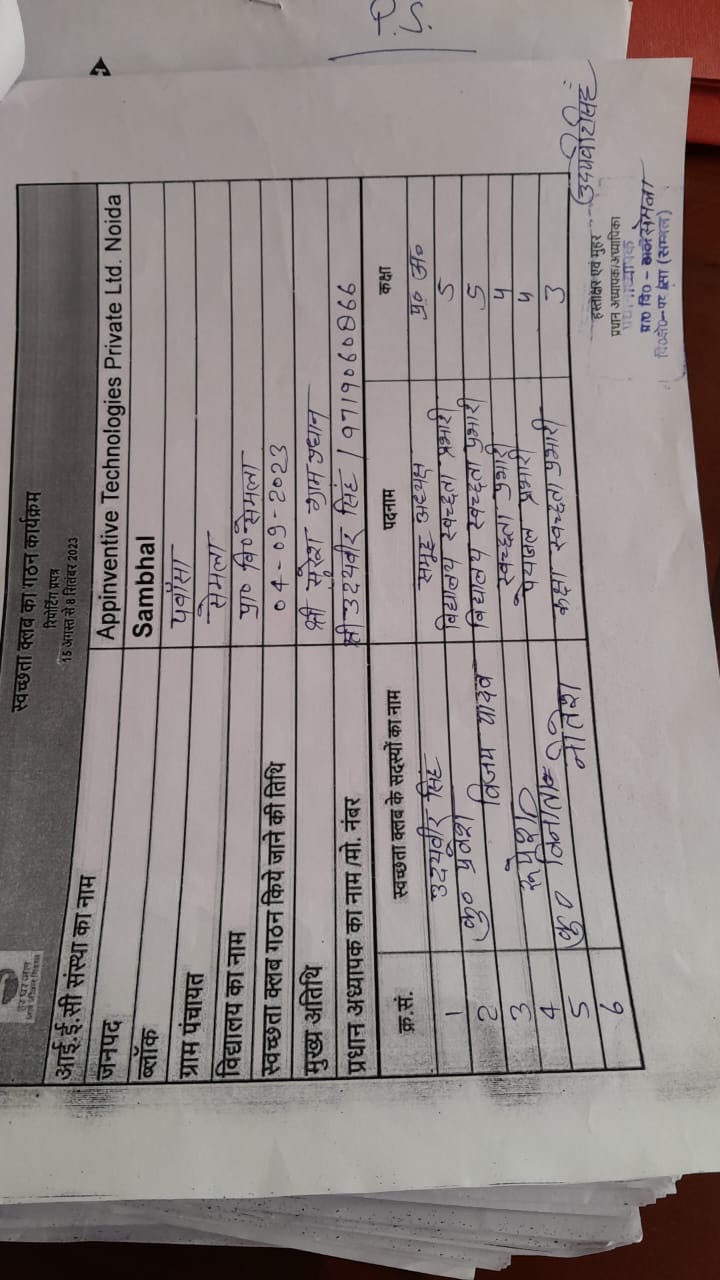 P.S.
हर घर जल
जल जीवन मिशन
स्वच्छता क्लब का गठन कार्यक्रम
रिपोर्टिंग प्रपत्र
15 अगस्त से 8 सितंबर 2023
आई.ई.सी संस्था का नाम Appinventive Technologies Private Ltd. Noida
जनपद Sambhal
ब्लॉक पवॉसा
ग्राम पंचायत सेमला
विद्यालय का नाम प्रा० वि० सेमला
स्वच्छता क्लब गठन किये जाने की तिथि 04-09-2023
मुख्य अतिथि श्री सुरेश ग्राम प्रधान
प्रधान अध्यापक का नाम /मो. नंबर श्री उदयवीर सिंह / 9719060866
क्र.सं. स्वच्छता क्लब के सदस्यों का नाम पदनाम कक्षा
1 उदयवीर सिंह समूह अध्यक्ष प्र० अ०
2 कु० प्रवेश विद्यालय स्वच्छता प्रभारी 5
3 विजय यादव विद्यालय स्वच्छता प्रभारी 5
4 रूपेश स्वच्छता प्रभारी 4
5 कु० पेयजल प्रभारी 4
6 नीतेश कक्षा स्वच्छता प्रभारी 3
उदयवीर सिंह
हस्ताक्षर एवं मुहर
प्रधान अध्यापक/अध्यापिका
प्रा० वि० - सेमला
(सम्भल)